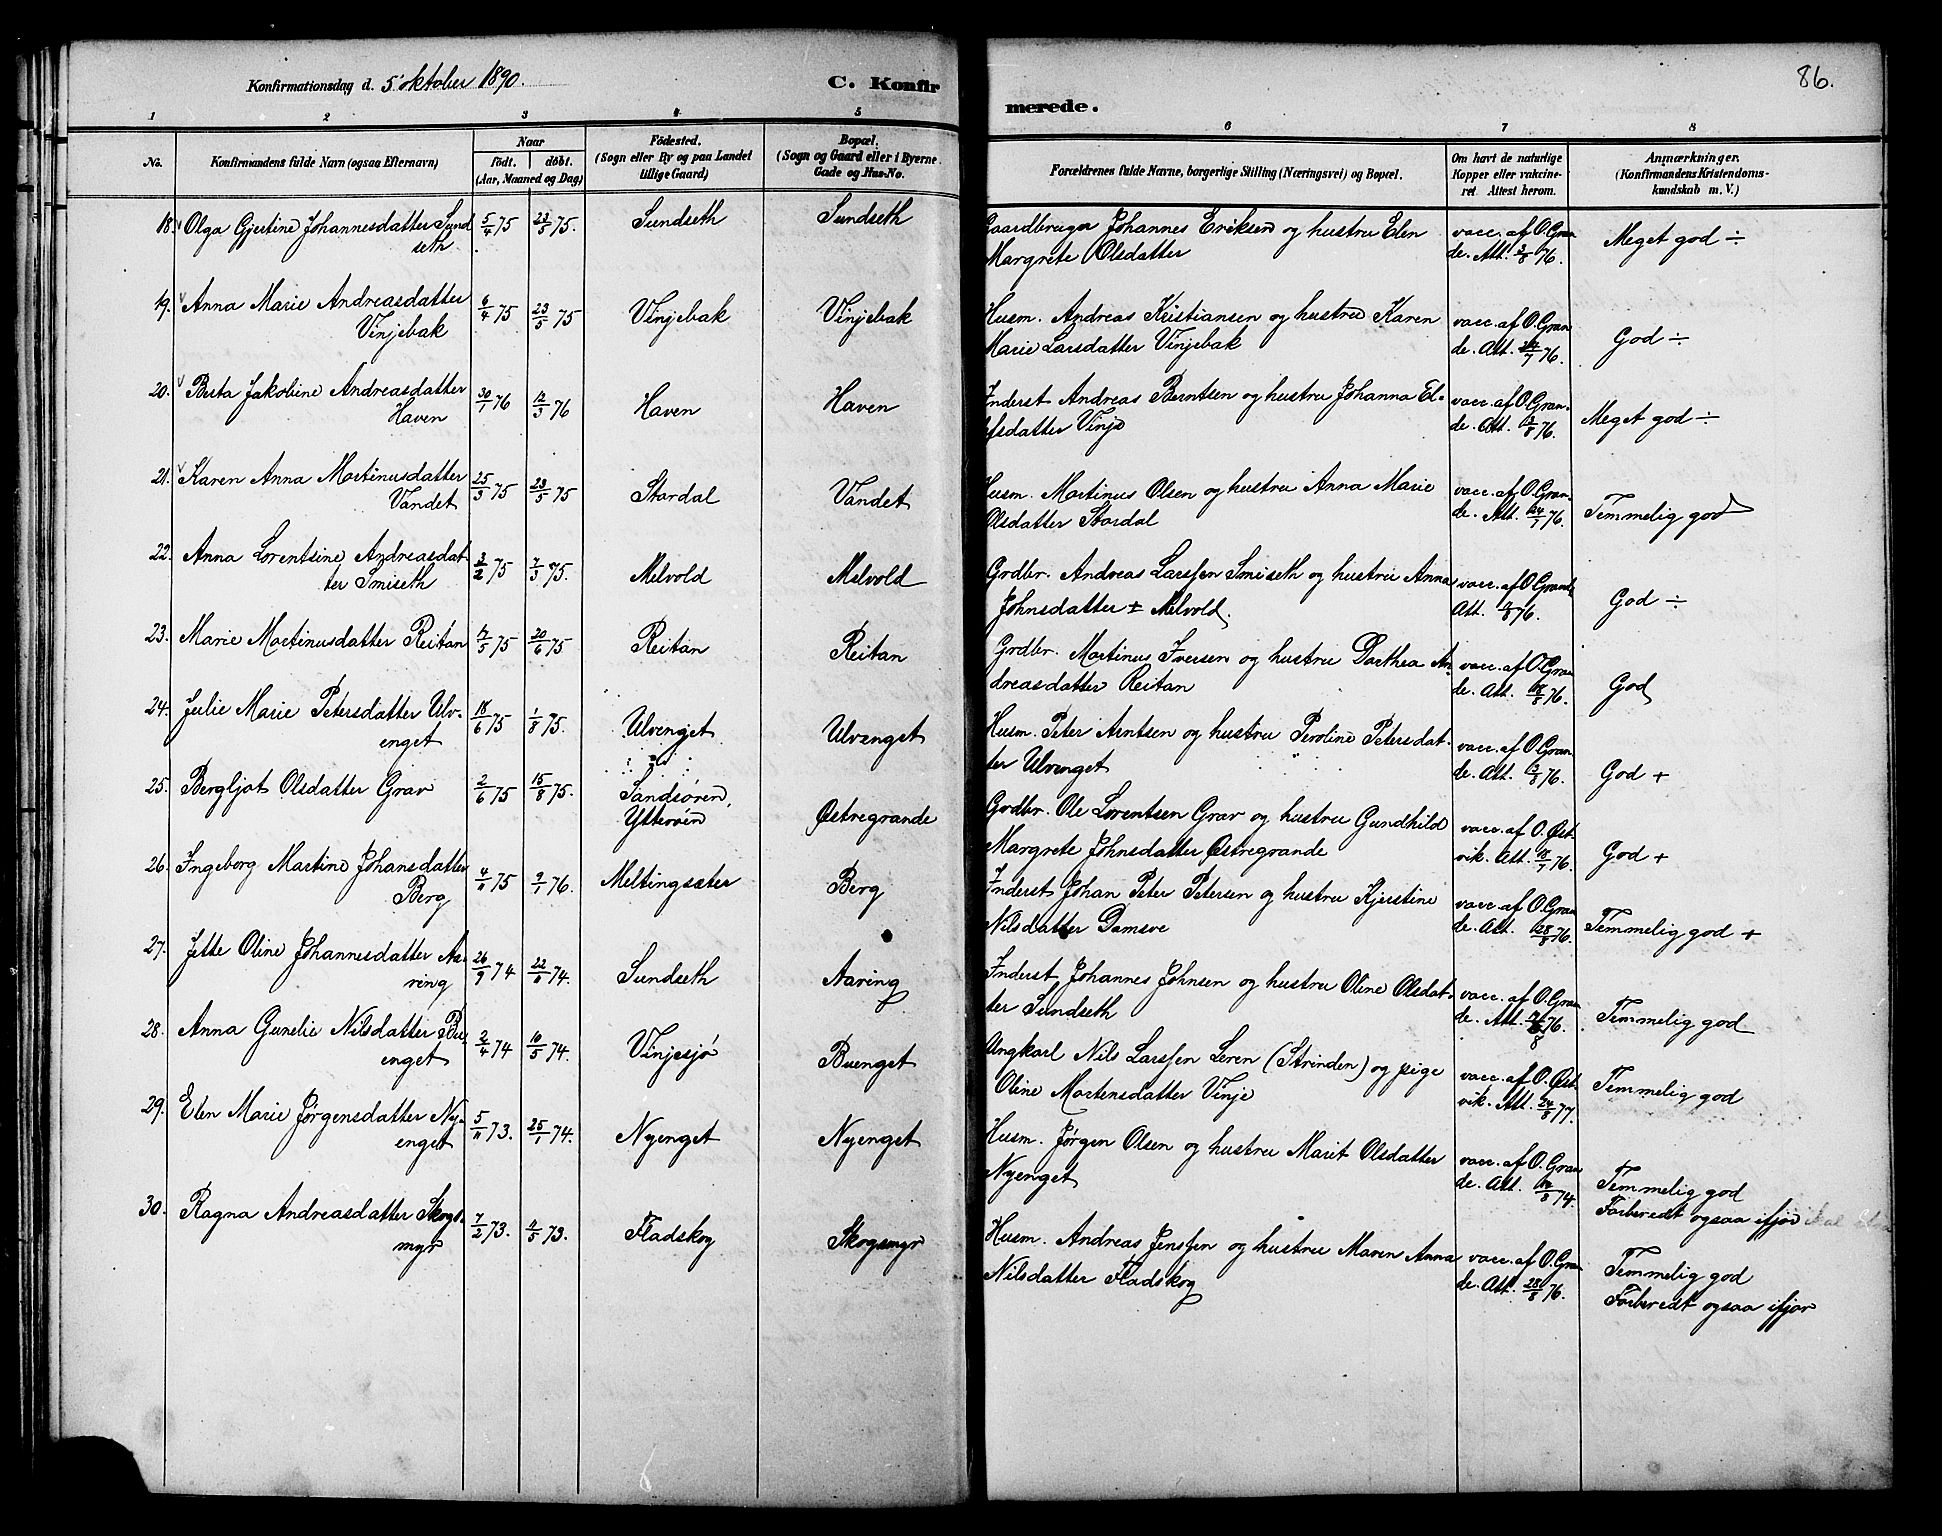 Konfirmationsdag d. 5' oktober 1890.
C. Konfir
merede.
86.
1 2 3 4 5 6 7 8
No.
Konfirmandens fulde Navn (ogsaa Efternavn)
Naar
født. døbt.
(Aar, Maaned og Dag)
Fødested.
(Sogn eller By og paa Landet
tillige Gaard)
Bopæl.
(Sogn og Gaard eller i Byerne
Gade og Hus-No.
Forældrenes fulde Navne, borgerlige Stilling (Næringsvei) og Bopæl.
Om havt de naturlige
Kopper eller vakcine-
ret. Attest herom.
Anmærkninger.
(Konfirmandens Kristendoms-
kundskab m. V.)
18. Olga Gjertine Johannesdatter Sund 5/4 75 23/5 75. Sundseth Sundseth Gaardbruger Johannes Eriksen og hustru Elen vacc. af O. Gran Meget god ÷
seth Margrete Olsdatter de. Att. 3/8 76.
19. Anna Marie Andreasdatter 6/4 75 23/5 75 Vinjebak Vinjebak Husm. Andreas Kristiansen og hustru Karen vacc. af O. Gran God ÷
Vinjebak Marie Larsdatter Vinjebak de. Att. /7 76.
20. Berta Jakobine Andreasdatter 30/1 76 12/3 76 Haven Haven Inderst Andreas Berntsen og hustru Johanna El- vacc. af O. Gran- Meget god ÷
Haven efsdatter Vinje de. Att. /8 76.
21. Karen Anna Martinusdatter 25/3 75 23/5 75 Stordal Vandet Husm. Martinus Olsen og hustru Anna Marie vacc. af O. Gran- Temmelig god
Vandet Olsdatter Stordal de. Att. 24/1 76.
22. Anna Lorentsine Andreasdat- 3/2 75 7/3 75. Melvold Melvold Grdbr. Andreas Larssen Smiseth og hustru Anna vacc. af O. Grande God ÷
ter Smiseth Johnsdatter ± Melvold. Att. /8 76.
23. Marie Martinusdatter Reitan 17/5 75 20/6 75 Reitan Reitan Grdbr. Martinus Iversen og hustru Dorthea An- vacc. af O. Gran God
dreasdatter Reitan de. Att. /8 76.
24. Julie Marie Petersdatter Ulv- 18/6 75 1/8 75. Ulvenget Ulvenget Husm. Peter Arntsen og hustru Peroline Petersdat- vacc. af O. Gran God +
enget ter Ulvenget de. Att. /8 76.
25. Bergljot Olsdatter Grav 2/6 75 15/8 75. Sandsören, Østregrande Grdbr. Ole Lorentsen Grav og hustru Gundhild vacc. af O. Øst- God +
Ytterøen Margrete Johnsdatter Østregrande vik. Att. 18/7 76.
26. Ingeborg Martine Johansdatter 4/11 75 9/1 76. Meltingsæter Berg Inderst Johan Peter Petersen og hustru Kjerstine vacc. af O. Gran Temmelig god +
Berg Nilsdatter Damsve de. Att. 28/8 76.
27. Jette Oline Johannesdatter Aa- 26/9 74 22/11 74. Sundseth Aaring Inderst Johannes Johnsen og hustru Oline Olsdat- vacc. af O. Gran Temmelig god
ring ter Sundseth de. Att. /8 76.
28. Anna Gunelie Nilsdatter Bu- 2/4 74 10/5 74. Vinjesjø Buenget Ungkarl Nils Larssen Leren (Strinden) og pige vacc. af O. Øst- Temmelig god
enget Oline Martensdatter Vinje vik. Att. 24/8 77.
29. Elen Marie Jørgensdatter Ny- 5/11 73. 25/1 74. Nyenget Nyenget Husm. Jørgen Olsen og hustru Marit Olsdatter vacc. af O. Gran Temmelig god
enget Nyenget de. Att. /8 74. Forberedt ogsaa ifjor
30. Ragna Andreasdatter Skogs- 7/2 73. 4/5 73. Fladskog Skogsmyr Husm. Andreas Jenssen og hustru Maren Anna vacc. af O. Gran Temmelig god
myr Nilsdatter Fladskog de. Att. 28/8 76. Forberedt ogsaa ifjor